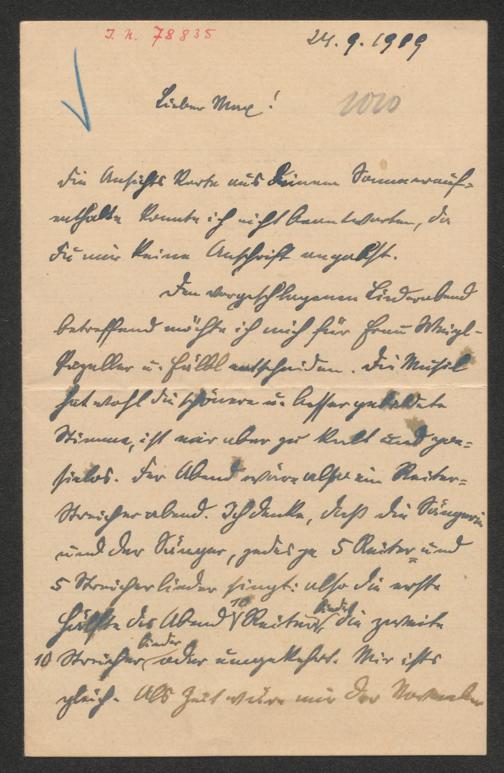 I. N. 78835
24. 9. 1909
Lieber Max!
die Ansichts Karte aus Deinem Sommerauf-
enthalte konnte ich nicht beantworten, da
Du mir keine Anschrift angabst.
Den vorgeschlagenen Liederabend
betreffend möchte ich mich für Frau Weigl-
u. Füssl entscheiden. Die Musil
hat wohl die schönere u. besser gebildete
Stimme, ist mir aber zu kalt und poe-
sielos. Der Abend wäre also ein Reiter-
Streicherabend. Ich denke, daß die Sängerin
und der Sänger, jedes je 5 Reiter- und
5 Streicherlieder singt: also die erste
Hälfte des Abend 10 Reiterlieder, die zweite
10 Streicherlieder oder umgekehrt. Mir ists
gleich. Als Zeit wäre mir der November